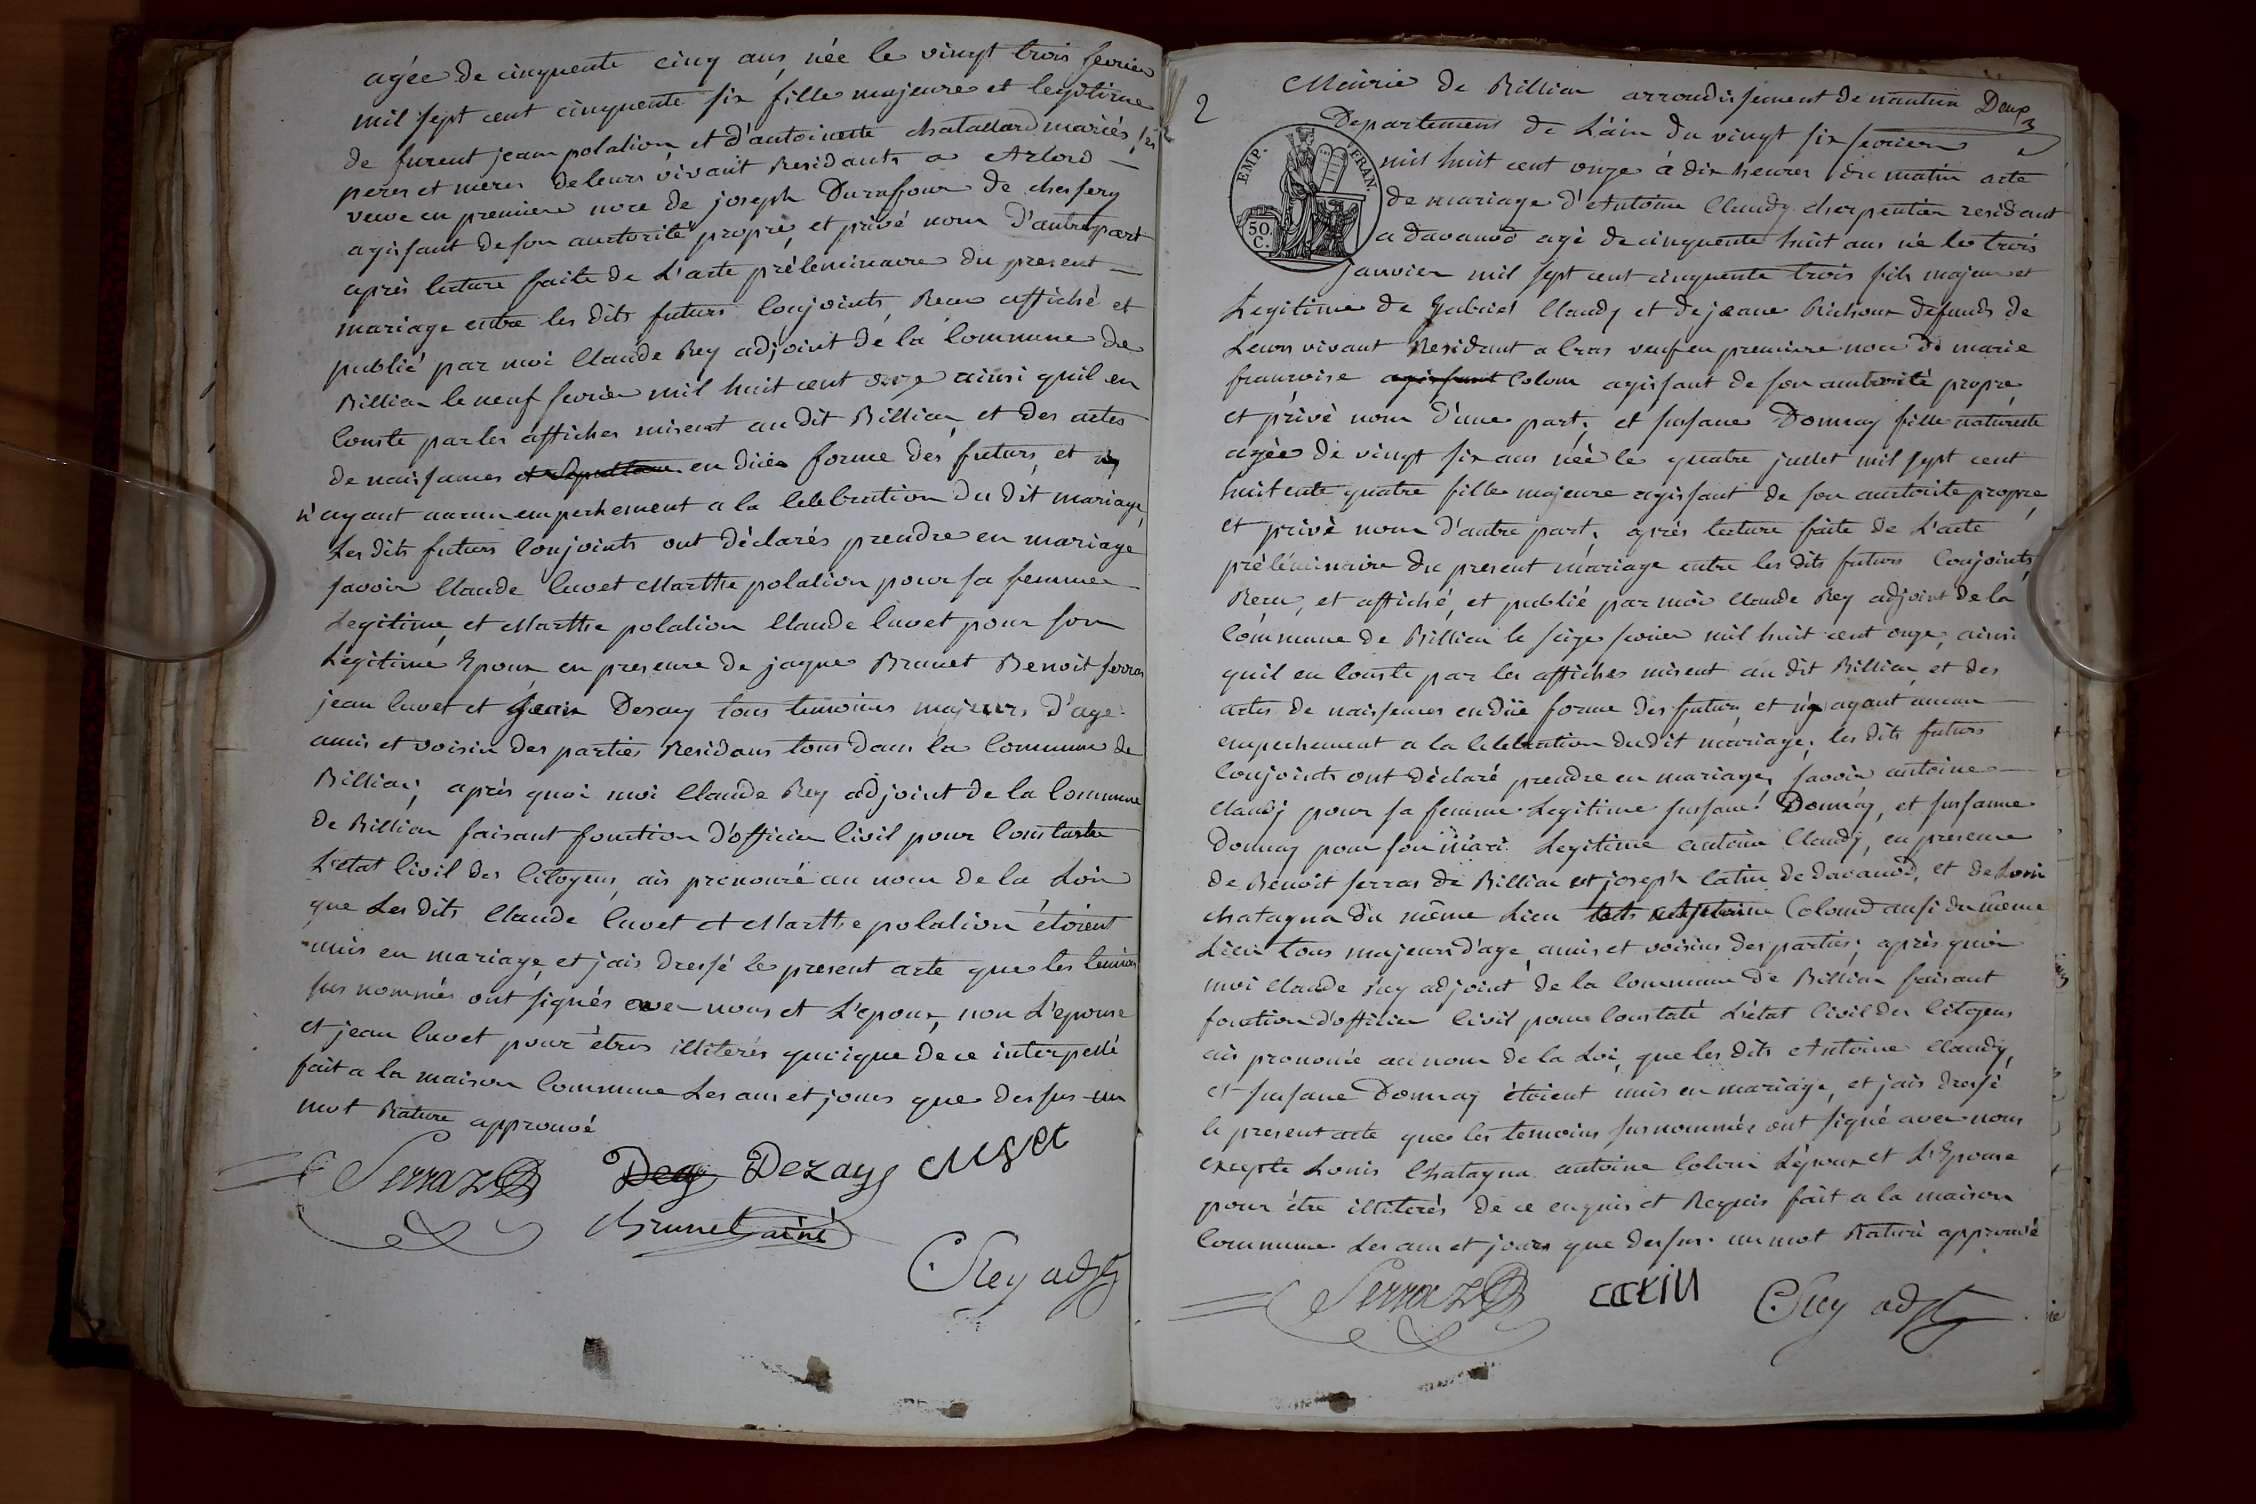 agée de cinquente cinq ans, née le vingt trois fevrier
mil sept cent cinquente six fille majeure et legitime
de furent jean polalion, et d'antoinette chatallard mariés
peres et meres de leurs vivant Residants a Arlord
veuve en premiere noce de joseph Duraffour de chesery
agissant de son auctorité propre, et privé nom D'autre part
après lecture faite de L'acte préleminaire du present
mariage entre les dits futurs Conjoints, Recu affiché et
publié par moi Claude Rey adjoint de la Commune de
Billiar le neuf fevrier mil huit cent onze ainsi quil en
Conste par les affiches misent au dit Billiar, et des actes
de naissances en diiés forme des futurs, et
n'ayant aucun empechement a la Celebration du dit mariage,
Les dits futurs Conjoints ont déclarés prendre en mariage
savoir Claude Cuvet Marthe polalion pour sa femme
Legitime, et Marthe polalion Claude Cuvet pour son
Légitime Epoux, en presence de jaque Brunet Benoit serras
jean Cuvet et jean Desay tous temoins majeurs d'age
amis et voisin des parties Residans tous dans la Commune de
Billiar; après quoi moi Claude Rey adjoint de la Commune
de Billiar faisant fonction d'officier Civil pour Constater
L'état Civil des Citoyens, ais prenoncé au nom de la Loi
que Les dits Claude Cuvet et Marthe polalion étoient
unis en mariage, et jais dressé le present acte que les temoins
sus nommés ont signés avec nous et L'epoux, non L'epouse
et jean Cuvet pour êtres illiterés quoique de ce interpellé
fait a la maison Commune Les an et jours que dessus un
mot Rature approuvé
Serraz Dezay CUVET
Brunet ainé
C Rey adjt
2 Mairie de Billiar arrondissement de nantua Deux
Departement de L'ain du vingt six fevrier
EMP. FRAN.
50. C.
mil huit cent onze à dix heures du matin acte
de mariage d'Antoine Claudy charpentier residant
a davanod agé de cinquente huit ans né le trois
janvier mil sept cent cinquente trois fils majeur et
Legitime de Gabriel Claudy et de jeane Richoux defunds de
Leurs vivant Residant a Cras veuf en premiere noce de marie
francoise Colom agissant de son auctorité propre
et privé nom d'une part; et susane Donnay fille naturelle
agée de vingt six ans née le quatre juillet mil sept cent
huitente quatre fille majeure agissant de son auctorité propre,
et privé nom d'autre part; après lecture faite de L'acte
préléminaire du present mariage entre les dits futurs Conjoints,
Recu, et affiché, et publié par moi Claude Rey adjoint de la
Commune de Billiar le seize fevrier mil huit cent onze, ainsi
quil en Conste par les affiches misent au dit Billiar, et des
actes de naissences en diie forme des futurs, et n'ayant aucun
empechement a la Celebration du dit mariage; les dits futurs
Conjoints ont déclaré prendre en mariage, savoir antoine
Claudy pour sa femme Legitime susane Donnay, et susanne
Donnay pour son mari Legitime antoine Claudy, en presence
de Benoit serras de Billiar et joseph Catin de davanod, et de Loui
chatagna du même Lieu Colomd ausi du même
Lieu tous majeurs d'age, amis et voisins des parties; après quoi
moi Claude Rey adjoint de la Commune de Billiar faisant
fonction d'officier Civil pour Constaté L'état Civil des Citoyens
ais prononcé au nom de la Loi, que les dits Antoine Claudy,
et susane Donnay étoient unis en mariage, et jais dressé
le present acte que les temoins sus nommés ont signé avec nous
excepte Louis Chatagna antoine Colom L'époux et L'Epouse
pour être illiterés de ce enquis et Requis fait a la maison
Commune Les an et jours que dessus. un mot Raturé approuvé
Serraz CATIN C Rey adjt